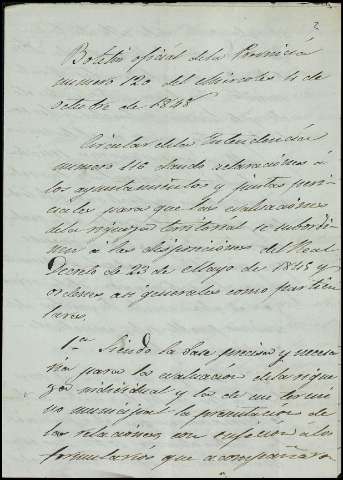 2
Boletin oficial de la Provincia
numero 120 del Miercoles 4 de
Octubre de 1848
Circular de la Intendencia
numero 116 dando aclaraciones á
los ayuntamientos y juntas peri-
ciales para que las evaluaciones
de la riqueza territorial se subordi-
nen á las disposiciones del Real
Decreto de 23 de Mayo de 1845 y
ordenes asi generales como particu
lares.
1.ª Siendo la base precisa y necesa
ria para la evaluación de la rique
za individual y la de un termi
no municipal la presentacion de
las relaciones con sujecion á los
formularios que acompañaron